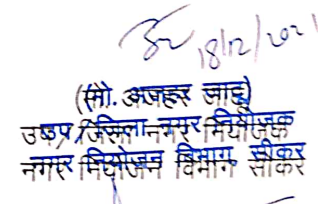 18/12/2021
(मो. अजहर जाटू)
उप जिला नगर नियोजक
नगर नियोजन विभाग, सीकर